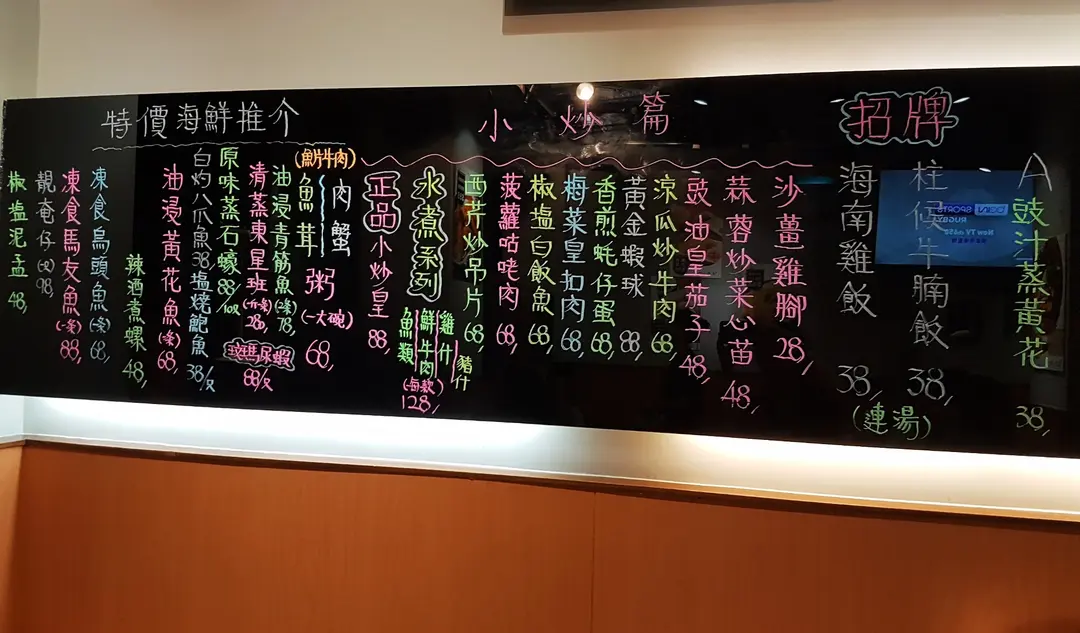 招牌
A 豉汁蒸黃花 38
柱侯牛腩飯 38
海南雞飯 38
(連湯)
小炒篇
沙薑雞腳 28
蒜蓉炒菜心苗 48
豉油皇茄子 48
涼瓜炒牛肉 68
黃金蝦球 88
香煎蚝仔蛋 68
梅菜皇扣肉 68
椒塩白飯魚 68
菠蘿咕咾肉 68
西芹炒吊片 68
水煮系列
雞什
豬什
鮮牛肉
魚類
(每款)
128
正品小炒皇 88
特價海鮮推介
(魚片牛肉)
肉蟹
魚茸
粥
(一大碗)
68
油浸青筋魚(條) 78
清蒸東星班(斤条) 280
斑馬尿蝦
88/只
原味蒸石蠔 88/10只
白灼八爪魚 38
塩燒鮑魚 38/只
油浸黃花魚(條) 68
辣酒煮螺 48
凍食烏頭魚(條) 68
凍食馬友魚(一条) 88
靚奄仔(只) 98
椒塩泥孟 48
SPORTS
RUGBY
Now TV